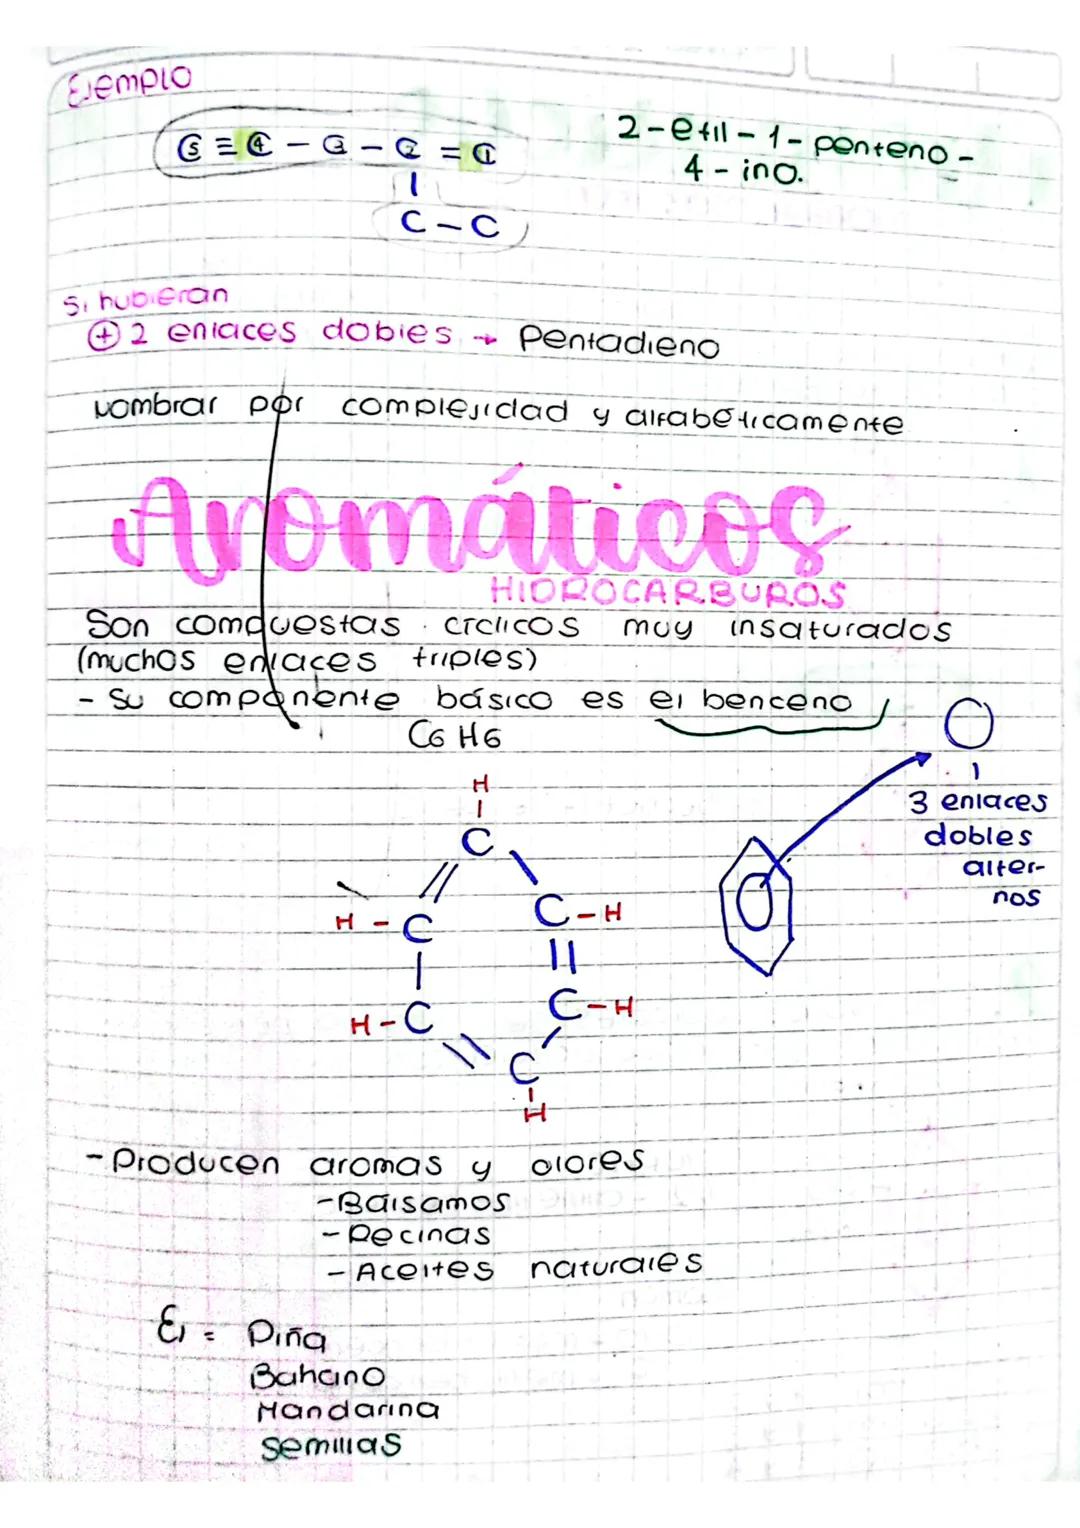 Ejemplo
C5 ≡ C4 - C3 - C2 = C1
|
C - C
2-etil-1-penteno-
4-ino.
Si hubieran
+ 2 enlaces dobles → Pentadieno
Nombrar por complejidad y alfabéticamente
Aromáticos
HIDROCARBUROS
Son compuestas cíclicos muy insaturados
(muchos enlaces triples)
- Su componente básico es el benceno
C6 H6
3 enlaces
dobles
alter-
nos
H
C
C - H
H - C
C - H
H - C
C
H
- Producen aromas y olores
- Bálsamos
- Recinas
- Aceites naturales
Ej = Piña
Banano
Mandarina
Semillas